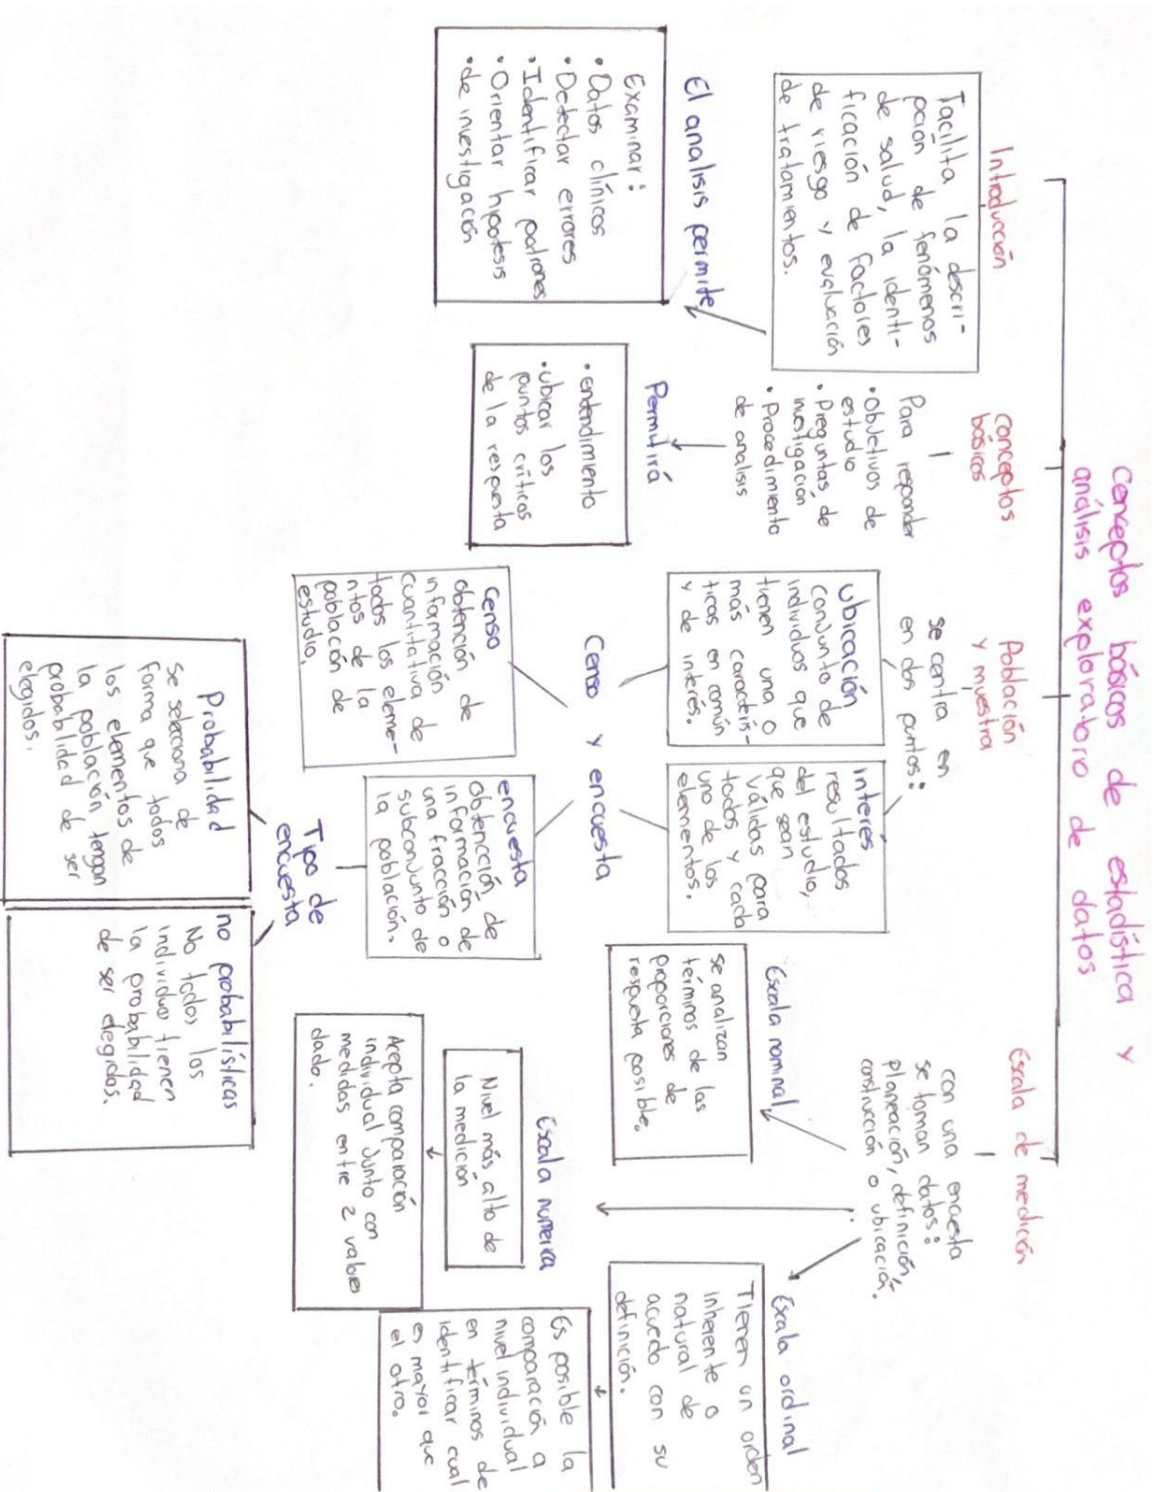 Conceptos básicos de estadística y
análisis exploratorio de datos
Introducción
Facilita la descri-
pción de fenómenos
de salud, la identi-
ficación de factores
de riesgo y evaluación
de tratamientos.
El analisis permite
Examinar:
• Datos clínicos
• Detectar errores
• Identificar patrones
• Orientar hipotesis
• de investigación
conceptos
básicos
Para responder
• Objetivos de
estudio
• Preguntas de
investigación
• Procedimiento
de analisis
Permitirá
• entendimiento
• ubicar los
puntos críticos
de la respuesta
Población
y muestra
se centra en
en dos puntos:
ubicación
conjunto de
individuos que
tienen una o
más caracterís-
ticas en común
y de interés.
interés
resultados
del estudio,
que sean
válidas para
todos y cada
uno de los
elementos.
Censo y encuesta
Censo
obtención de
información
cuantitativa de
todos los eleme-
ntos de la
población de
estudio.
encuesta
Obtención de
información de
una fracción o
subconjunto de
la población.
Tipo de
encuesta
Probabilidad
se selecciona de
forma que todos
los elementos de
la población tengan
probabilidad de ser
elegidos.
no probabilísticas
No todos los
individuos tienen
la probabilidad
de ser elegidos.
Escala de medición
con una encuesta
se toman datos:
planeación, definición,
construcción o ubicación.
Escala nominal
se analizan
términos de las
proporciones de
respuesta posible.
Escala numerica
Nivel más alto de
la medición
Acepta comparación
individual Junto con
medidas entre 2 valores
dado.
Escala ordinal
Tienen un orden
inherente o
natural de
acuerdo con su
definición.
Es posible la
comparación a
nivel individual
en términos de
identificar cual
es mayor que
el otro.